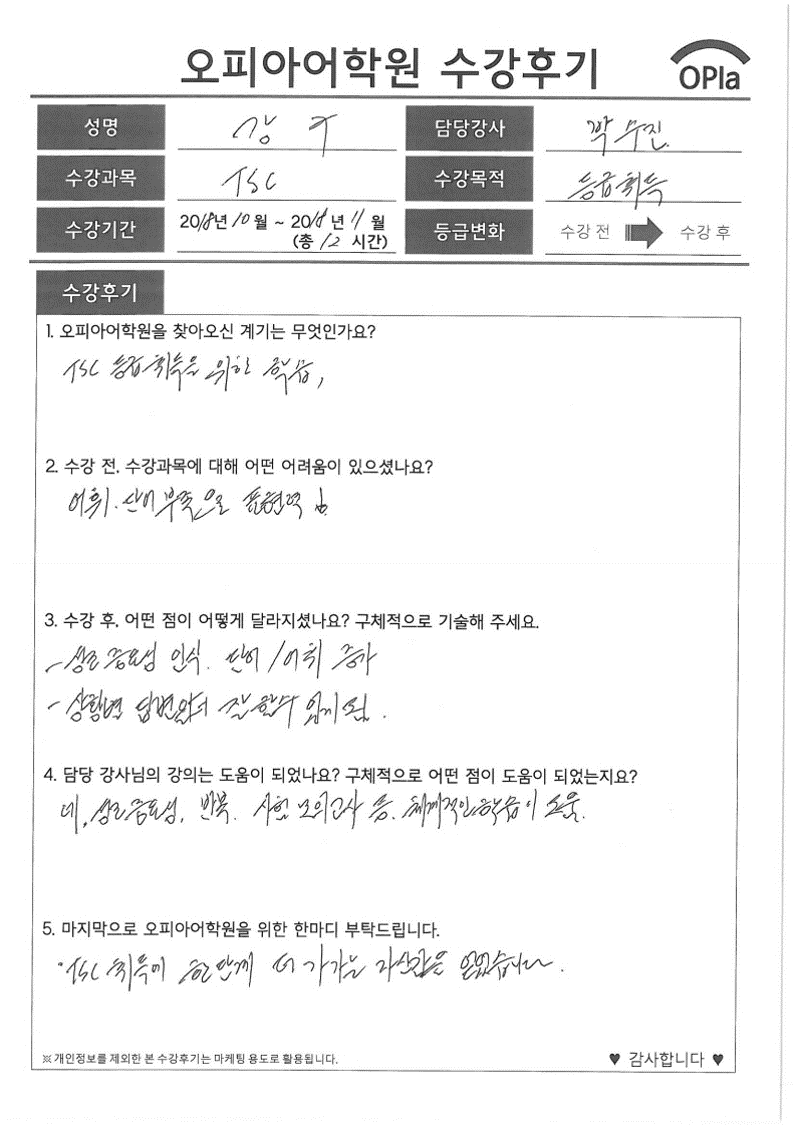 오피아어학원 수강후기
OPIa
성명 강 우 담당강사 박우진
수강과목 TSC 수강목적 등급취득
수강기간 2018년 10월 ~ 2018년 11월 (총 12 시간) 등급변화 수강 전 수강 후
수강후기
1. 오피아어학원을 찾아오신 계기는 무엇인가요?
TSC 등급취득을 위한 학습,
2. 수강 전, 수강과목에 대해 어떤 어려움이 있으셨나요?
어휘. 단어부족으로 표현력
3. 수강 후, 어떤 점이 어떻게 달라지셨나요? 구체적으로 기술해 주세요.
- 성조 중요성 인식. 단어/어휘 증가
- 상황별 답변을 더 잘 할수 있게 됨.
4. 담당 강사님의 강의는 도움이 되었나요? 구체적으로 어떤 점이 도움이 되었는지요?
네, 성조중요성, 반복. 시험 모의고사 등. 체계적인 학습이 도움.
5. 마지막으로 오피아어학원을 위한 한마디 부탁드립니다.
· TSC 취득에 한단계 더 다가가는 자신감을 얻었습니다.
※ 개인정보를 제외한 본 수강후기는 마케팅 용도로 활용됩니다.
♥ 감사합니다 ♥